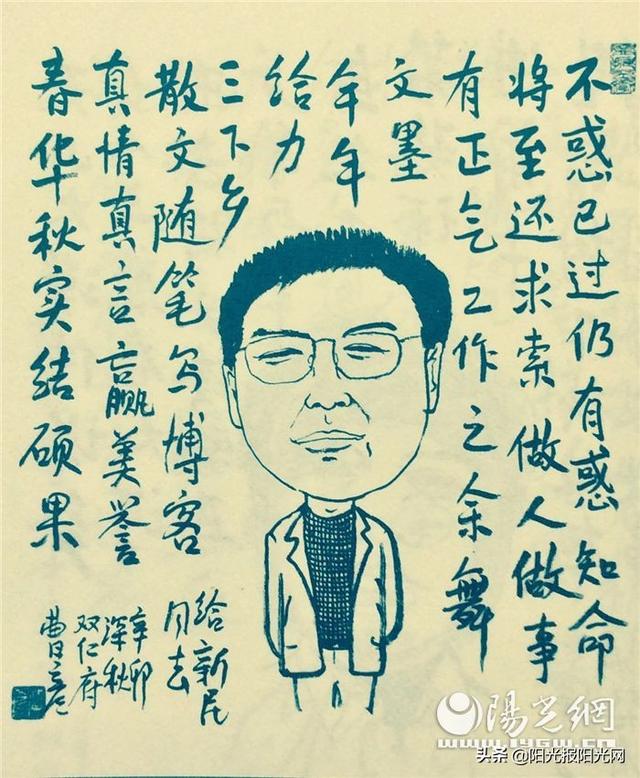 不惑已过仍有惑知命
将至还求索做人做事
有正气工作之余舞
文墨
年年
给力
三下乡
散文随笔写博客
真情真言赢美誉
春华秋实结硕果
给新民
同志
辛卯
深秋
双仁府
曹
陽光網
头条 @阳光报阳光网